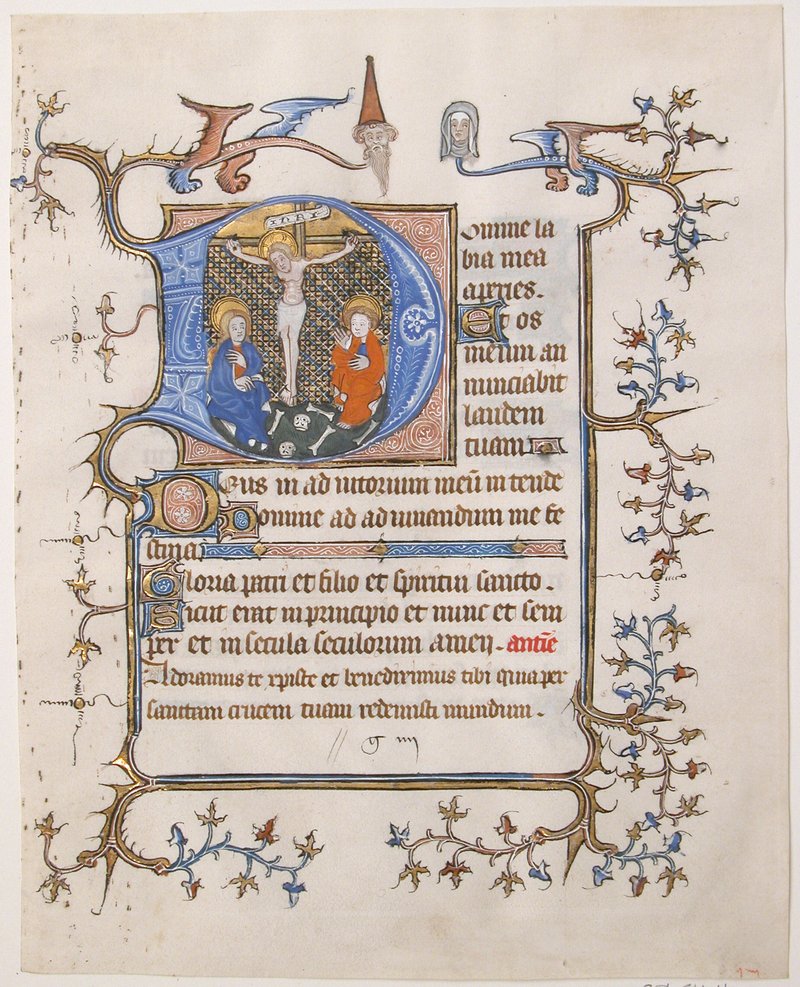 INRI
Domine la
bia mea
aperies.
Et os
meum an
nunciabit
laudem
tuam
Deus in ad iutorium meū intende
Domine ad ad iuuandum me fe
stina
Gloria patri et filio et spiritui sancto.
Sicut erat in principio et nunc et sem
per et in secula seculorum amen. antiē
Adoramus te xpiste et benedicimus tibi quia per
sanctam crucem tuam redemisti mundum.